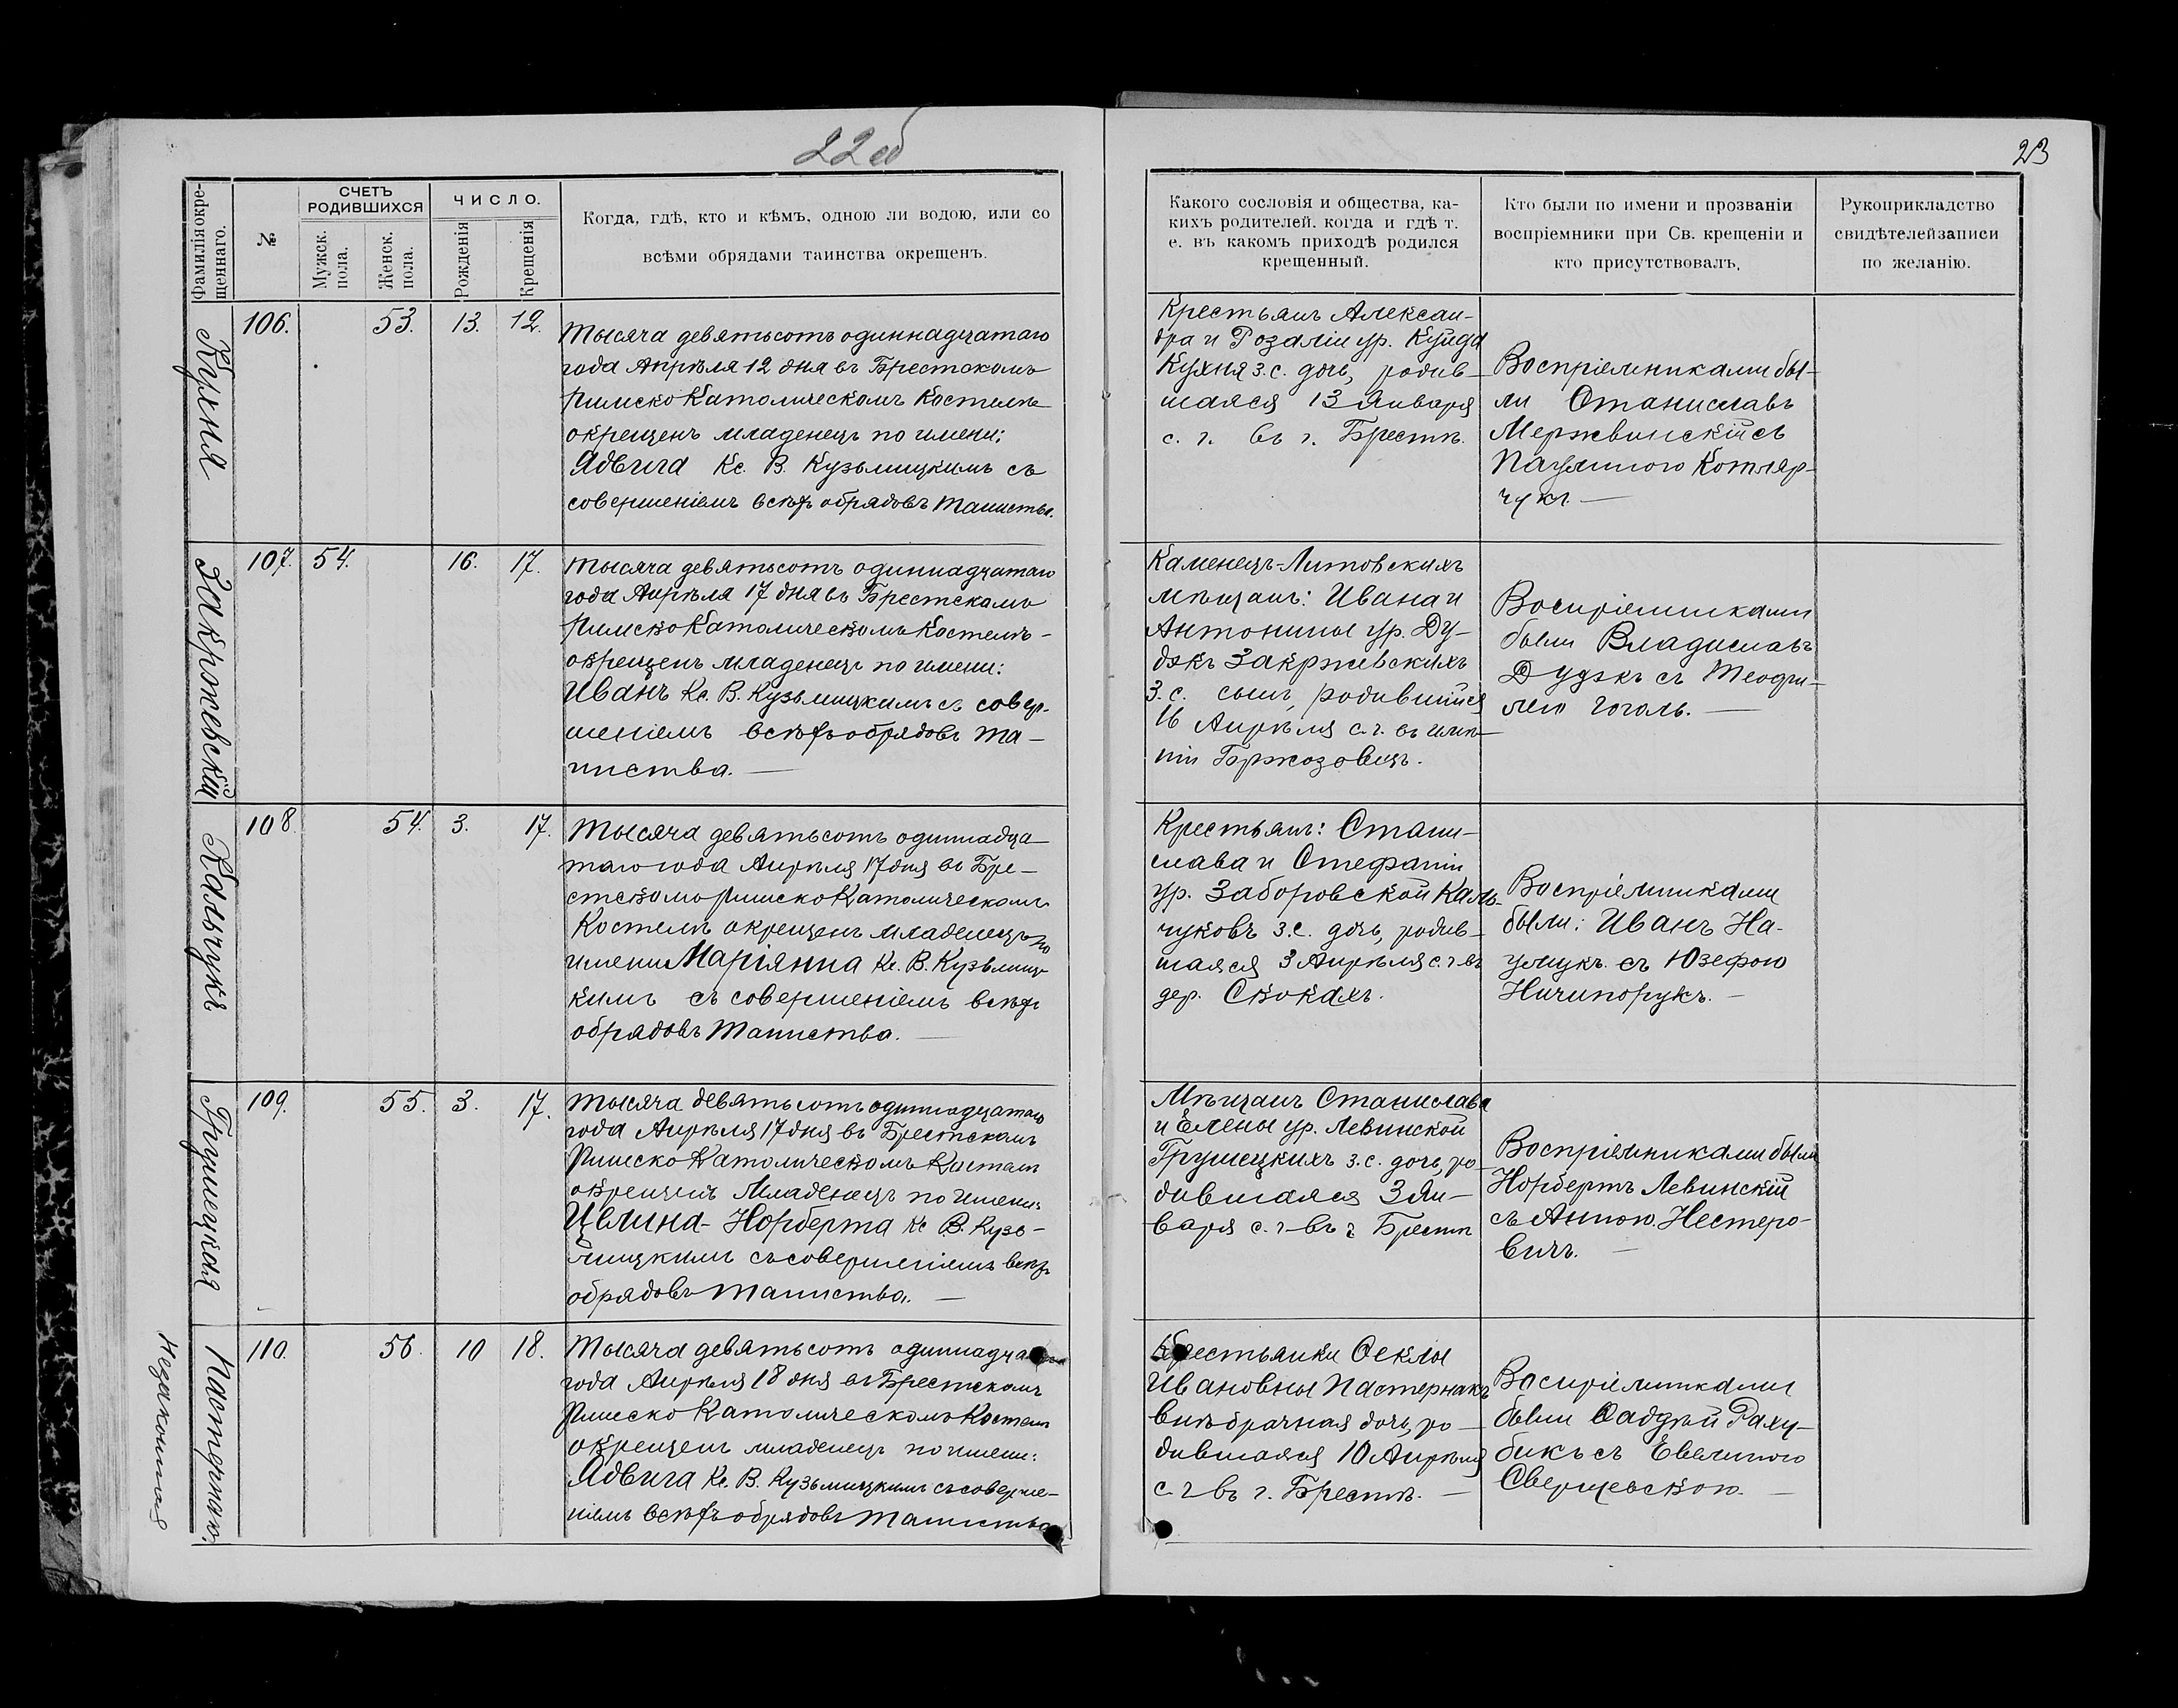 22об
23
Фамилія окре-
щеннаго.
№
СЧЕТЪ
РОДИВШИХСЯ
Мужск.
пола.
Женск.
пола.
ЧИСЛО.
Рожденія
Крещенія
Когда, гдѣ, кто и кѣмъ, одною ли водою, или со
всѣми обрядами таинства окрещенъ.
Какого сословія и общества, ка-
кихъ родителей, когда и гдѣ т.
е. въ какомъ приходѣ родился
крещенный.
Кто были по имени и прозванію
воспріемники при Св. крещеніи и
кто присутствовалъ.
Рукоприкладство
свидѣтелей записи
по желанію.
Кухня
106.
53.
13.
12.
Тысяча девятьсотъ одиннадцатаго
года Апрѣля 12 дня въ Брестскомъ
Римско Католическомъ Костелѣ
окрещенъ младенецъ по имени:
Ядвига Кс. В. Кузьмицкимъ съ
совершеніемъ всѣхъ обрядовъ Таинства.
Крестьянъ Алексан-
дра и Розаліи ур. Куйда
Кухня з. с. дочь, родив-
шаяся 13 Января
с. г. въ г. Брестѣ.
Воспріемниками бы-
ли Станиславъ
Мержвинскій съ
Паулиною Котляр-
чукъ.
Закржевскій
107.
54.
16.
17.
Тысяча девятьсотъ одиннадцатаго
года Апрѣля 17 дня въ Брестскомъ
Римско Католическомъ Костелѣ
окрещенъ младенецъ по имени:
Иванъ Кс. В. Кузьмицкимъ съ совер-
шеніемъ всѣхъ обрядовъ Та-
инства.
Каменецъ-Литовскихъ
мѣщанъ: Ивана и
Антонины ур. Ду-
дэкъ Закржевскихъ
з. с. сынъ, родившійся
16 Апрѣля с. г. въ имѣ-
ніи Бржозовцъ.
Воспріемниками
были Владиславъ
Дудэкъ съ Теофи-
лею Гоголь.
Кальчукъ
108.
54.
3.
17.
Тысяча девятьсотъ одиннадца-
таго года Апрѣля 17 дня въ Бре-
стскомъ Римско Католическомъ
Костелѣ окрещенъ младенецъ по
имени Маріянна Кс. В. Кузьмиц-
кимъ съ совершеніемъ всѣхъ
обрядовъ Таинства.
Крестьянъ: Стани-
слава и Стефаніи
ур. Заборовской Каль-
чуковъ з. с. дочь, родив-
шаяся 3 Апрѣля с. г. въ
дер. Скокахъ.
Воспріемниками
были: Иванъ На-
умукъ съ Юзефою
Ничипорукъ.
Грушецкая
109.
55.
3.
17.
Тысяча девятьсотъ одиннадцатаго
года Апрѣля 17 дня въ Брестскомъ
Римско Католическомъ Костелѣ
окрещенъ Младенецъ по имени:
Норберта Кс В. Кузь-
мицкимъ съ совершеніемъ всѣхъ
обрядовъ Таинства.
Мѣщанъ Станислава
и Елены ур. Левинской
Грушецкихъ з. с. дочь, ро-
дившаяся 3 Ян-
варя с. г. въ г Брестѣ
Воспріемниками были
Норбертъ Левинскій
съ Несторо-
вичъ.
Пастернакъ
незаконная
110.
56.
10
18.
Тысяча девятьсотъ одиннадцатаго
года Апрѣля 18 дня въ Брестскомъ
Римско Католическомъ Костелѣ
окрещенъ младенецъ по имени:
Ядвига Кс. В. Кузьмицкимъ съ соверше-
ніемъ всѣхъ обрядовъ Таинства
Крестьянки Ѳеклы
Ивановны Пастернакъ
внѣбрачная дочь, ро-
дившаяся 10 Апрѣля
с. г. въ г. Брестѣ.
Воспріемниками
были Ѳаддѣй Раху-
бикъ съ Евелиною
Сверщевскою.